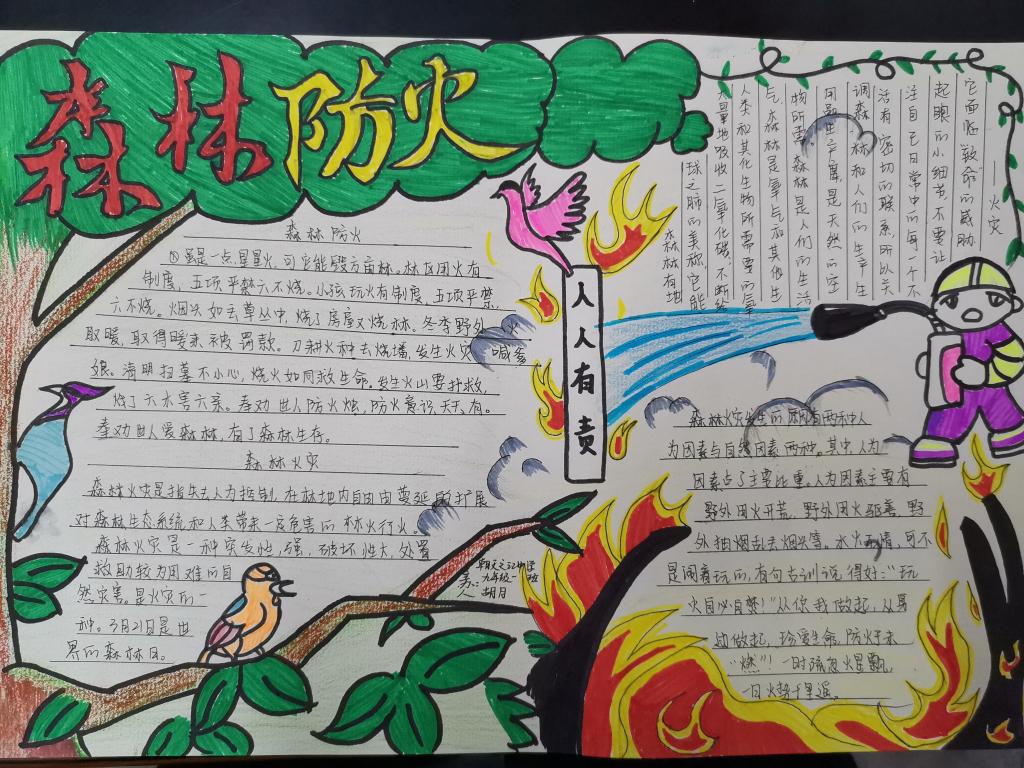 森林防火
森林防火
①虽是一点星星火,可它能毁万亩林。林区用火有
制度,五项严禁六不烧。小孩玩火有制度、五项严禁
六不烧。烟头如去草丛中,烧了房屋又烧林。冬季野外
取暖,取得暖来被罚款。刀耕火种去烧播,发生火灾喊爹
娘。清明扫墓不小心,烧火如同救生命。发生火山要扑救,
烧了六木害六亲。奉劝世人防火烛,防火意识天天有。
奉劝世人爱森林,有了森林生存。
森林火灾
森林火灾是指失去人为控制,在林地内自由蔓延扩展
对森林生态系统和人类带来一定危害的林火行火。
森林火灾是一种突发性强,破坏性大,处置
救助较为困难的自
然灾害。是火灾的一
种。3月21日是世
界的森林日。
九年级一班
胡月
人人有责
它面临致命的威胁——火灾
起眼的小细节不要让
注自己日常中的每一个不
活有密切的联系所以关
调森林和人们的生产生
用品生产离,是天然的空
物所需,森林是人们的生活
气,森林是氧气和其他生
人类和其化生物所需要的氧
大量地吸收二氧化碳,不断给
球之肺的美称,它能
森林有地
森林火灾发生的原因有两种人
为因素与自然因素两种。其中人为
因素占了主要比重。人为因素主要有
野外用火开荒,野外用火驱兽,野
外抽烟乱丢烟头等。水火无情,可不
是闹着玩的,有句古训说得好:"玩
火自必自焚!"从你我做起,从身
边做起,珍爱生命,防火于未
"燃"!一时疏忽火星飘
一日火势千里遥。